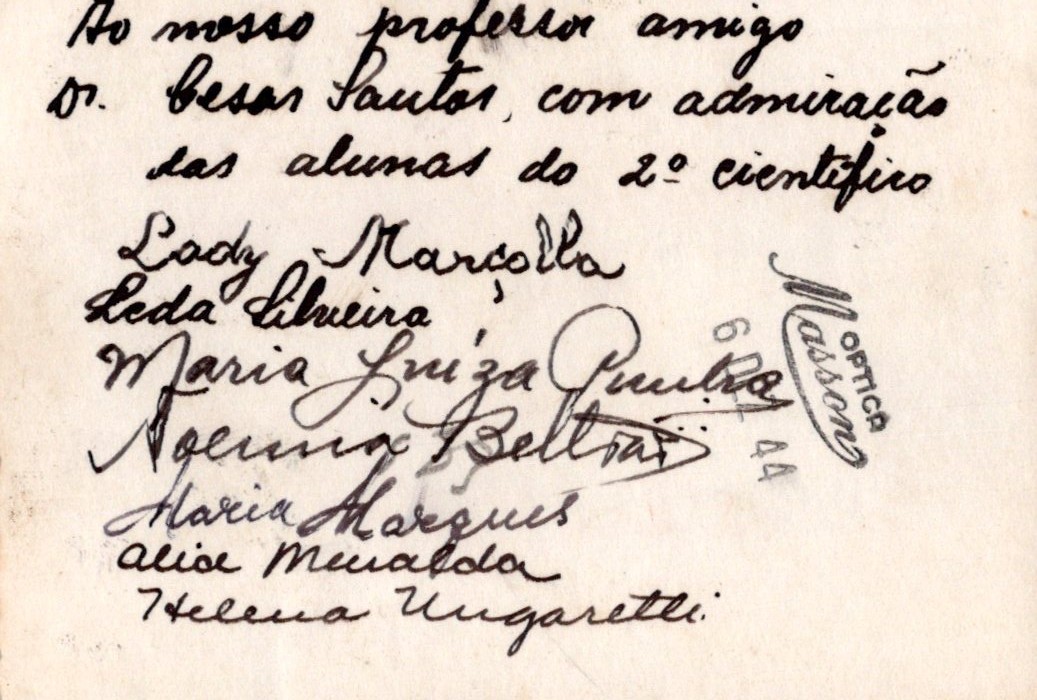 Ao nosso professor amigo
Dr. Cesar Santos, com admiração
das alunas do 2º científico
Lady Marçolla
Leda Silveira
Maria Luíza
Noemia
Maria Marques
Alice
Helena Ungaretti
OPTICA
Masson
6 DEZ 44